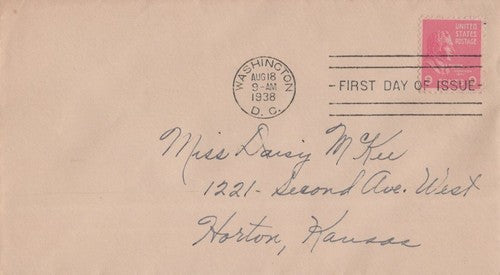 UNITED
STATES
POSTAGE
WASHINGTON
AUG 18
9-AM
1938
D. C.
FIRST DAY OF ISSUE
Miss Daisy McKee
1221- Second Ave. West
Horton, Kansas